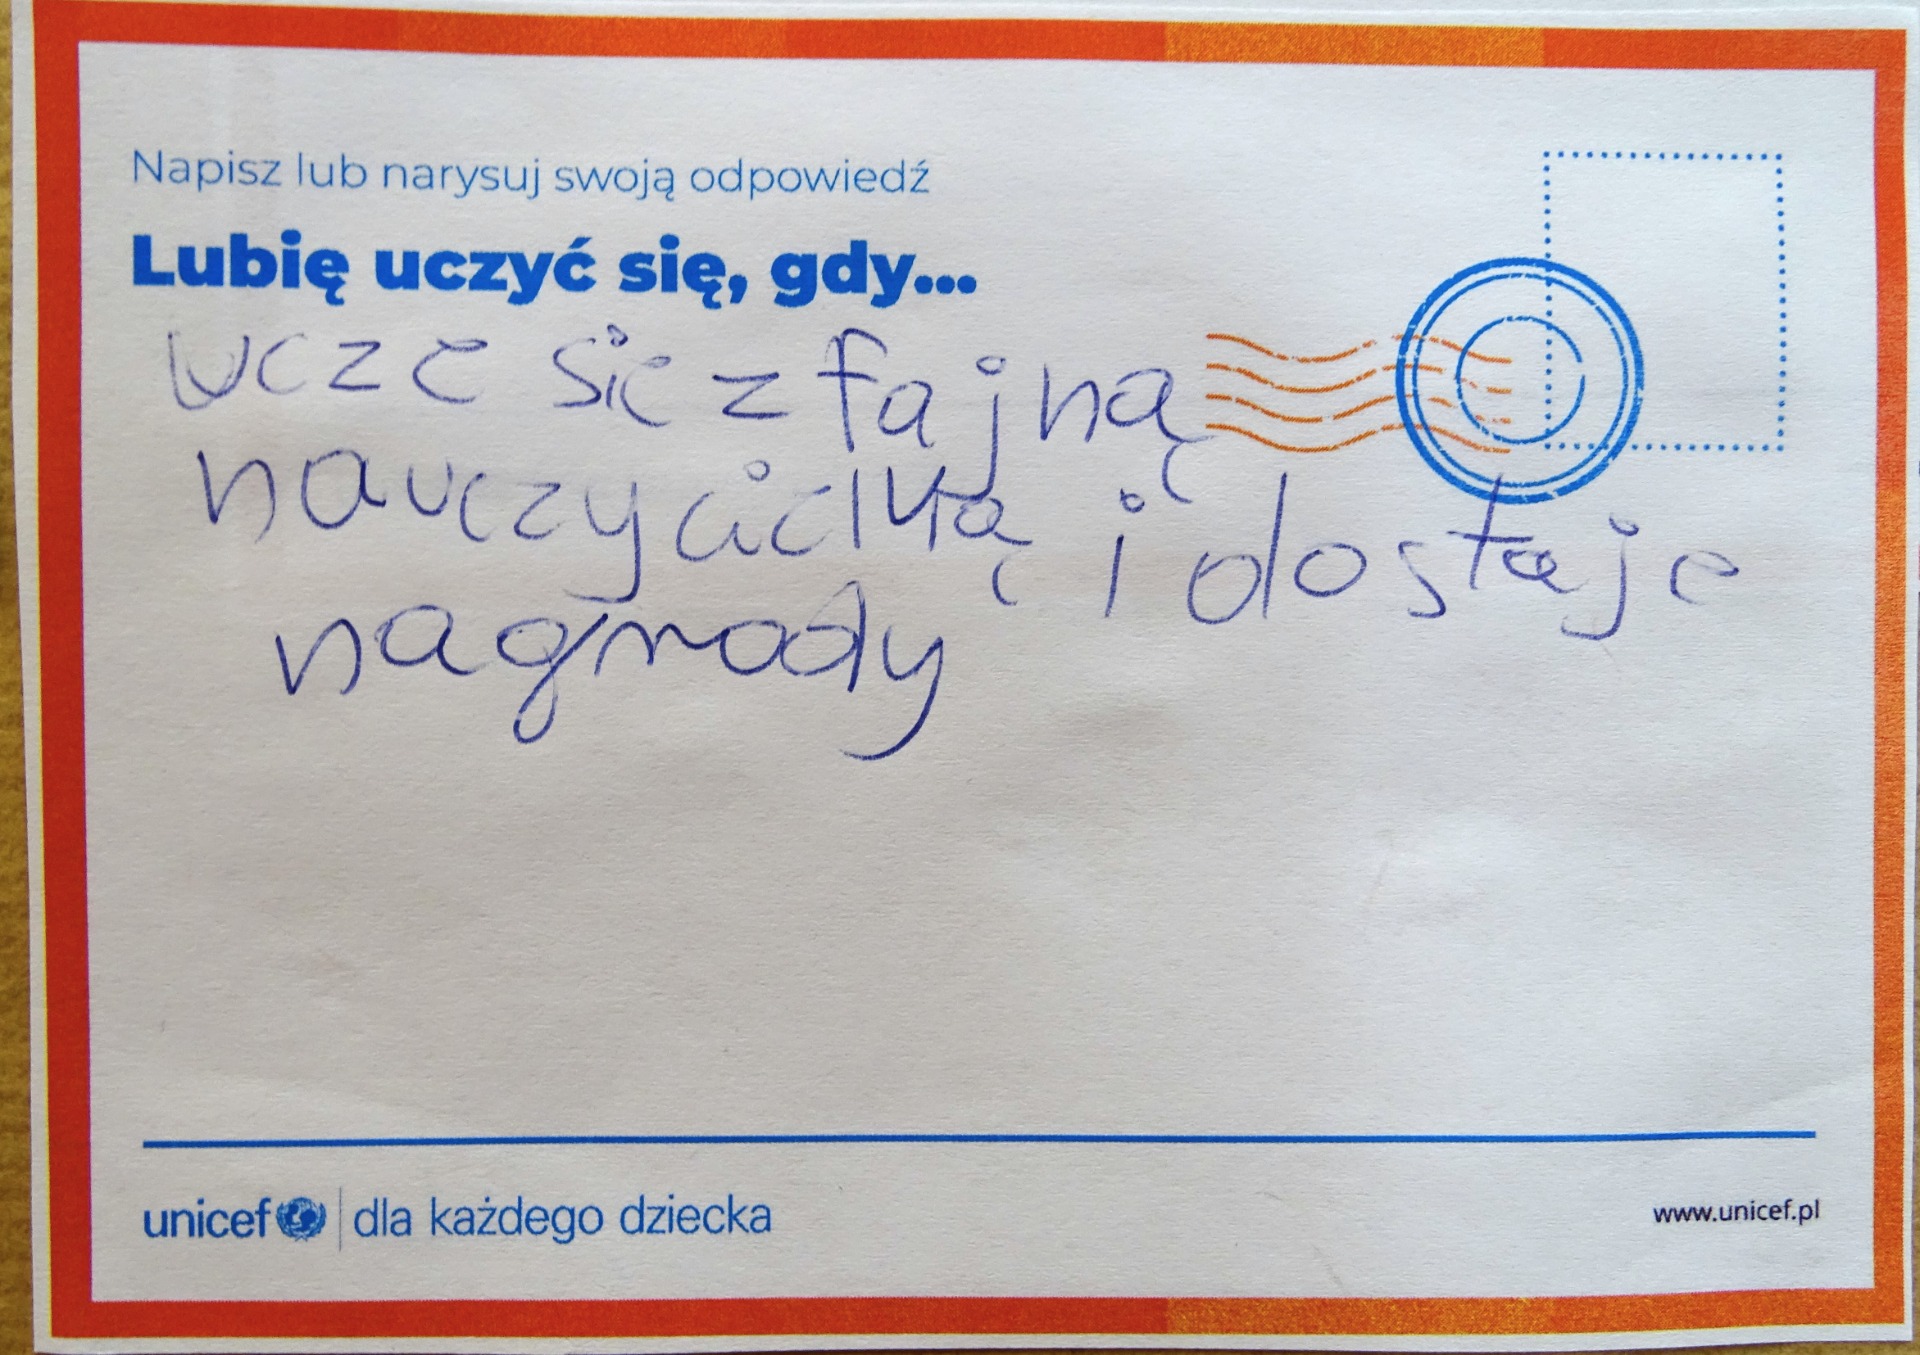 Napisz lub narysuj swoją odpowiedź
Lubię uczyć się, gdy...
ucze sie z fajną
nauczycielką i dostaje
nagrody
unicef dla każdego dziecka
www.unicef.pl